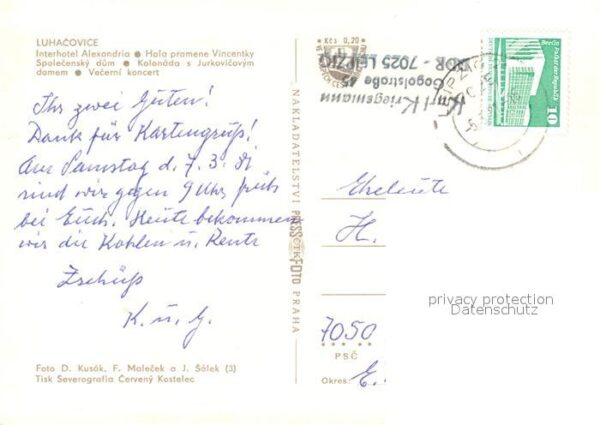 LUHAČOVICE
Interhotel Alexandria ● Hala pramene Vincentky
Společenský dům ● Kolonáda s Jurkovičovým
domem ● Večerní koncert
Ihr zwei Guten!
Dank für Kartengruß!
Am Samstag d. 7.3.81
sind wir gegen 9 Uhr früh
bei Euch. Heute bekommen
wir die Kohlen u. Rente
Zschüß
K. u. G.
Foto D. Kusák, F. Maleček a J. Šálek (3)
Tisk Severografia Červený Kostelec
NAKLADATELSTVÍ PRESSFOTO PRAHA
ČTK
Kčs 0,20
Karl Kriegsmann
Gogolstraße 45
DDR - 7025 LEIPZIG
Berlin Palast der Republik
10
Eheleute
H.
privacy protection
Datenschutz
7050
PSČ
Okres: E.